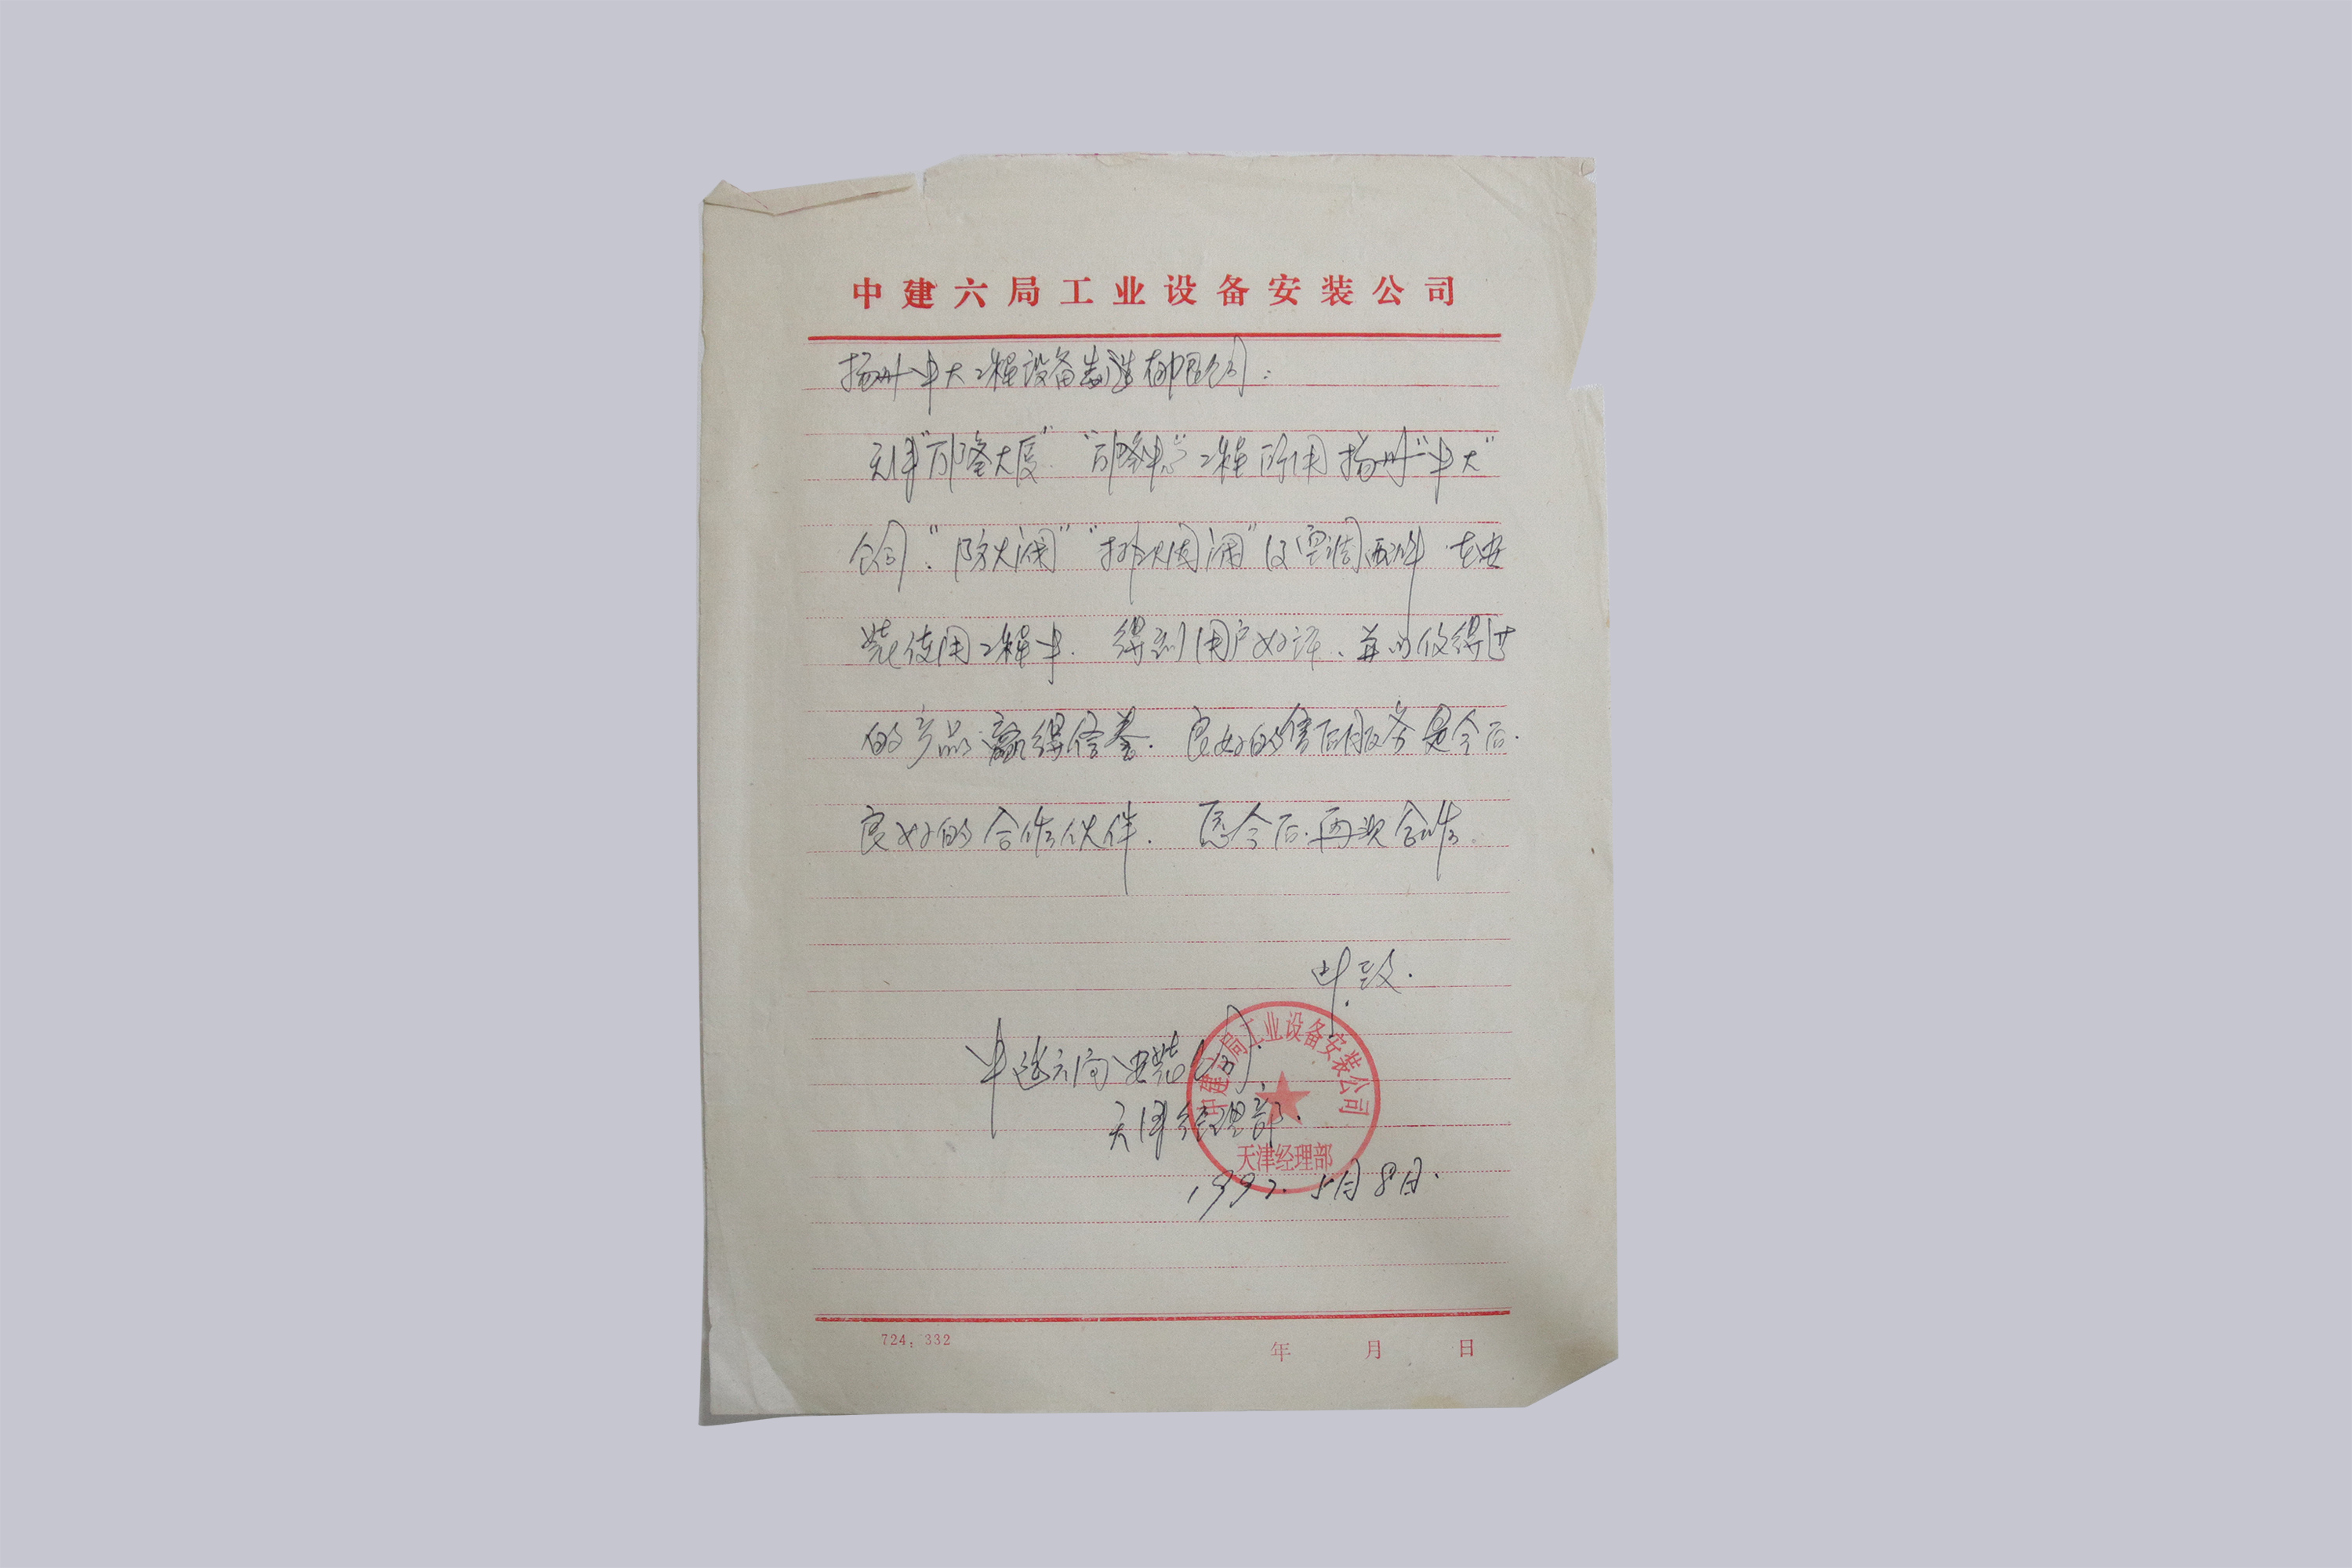 中建六局工业设备安装公司
扬州中大工程设备制造有限公司：
天津“万隆大厦”“万隆中心”工程所用扬州“中大”
公司：“防火阀”“排烟阀”及空调配件.在安
装使用工程中.得到用户好评、并以优得过
的产品赢得信誉.良好的售后服务是今后.
良好的合作伙伴.愿今后.再次合作。
此致.
中建六局安装公司.
天津经理部.
中建六局工业设备安装公司
天津经理部
1997.5月8日.
724；332
年 月 日